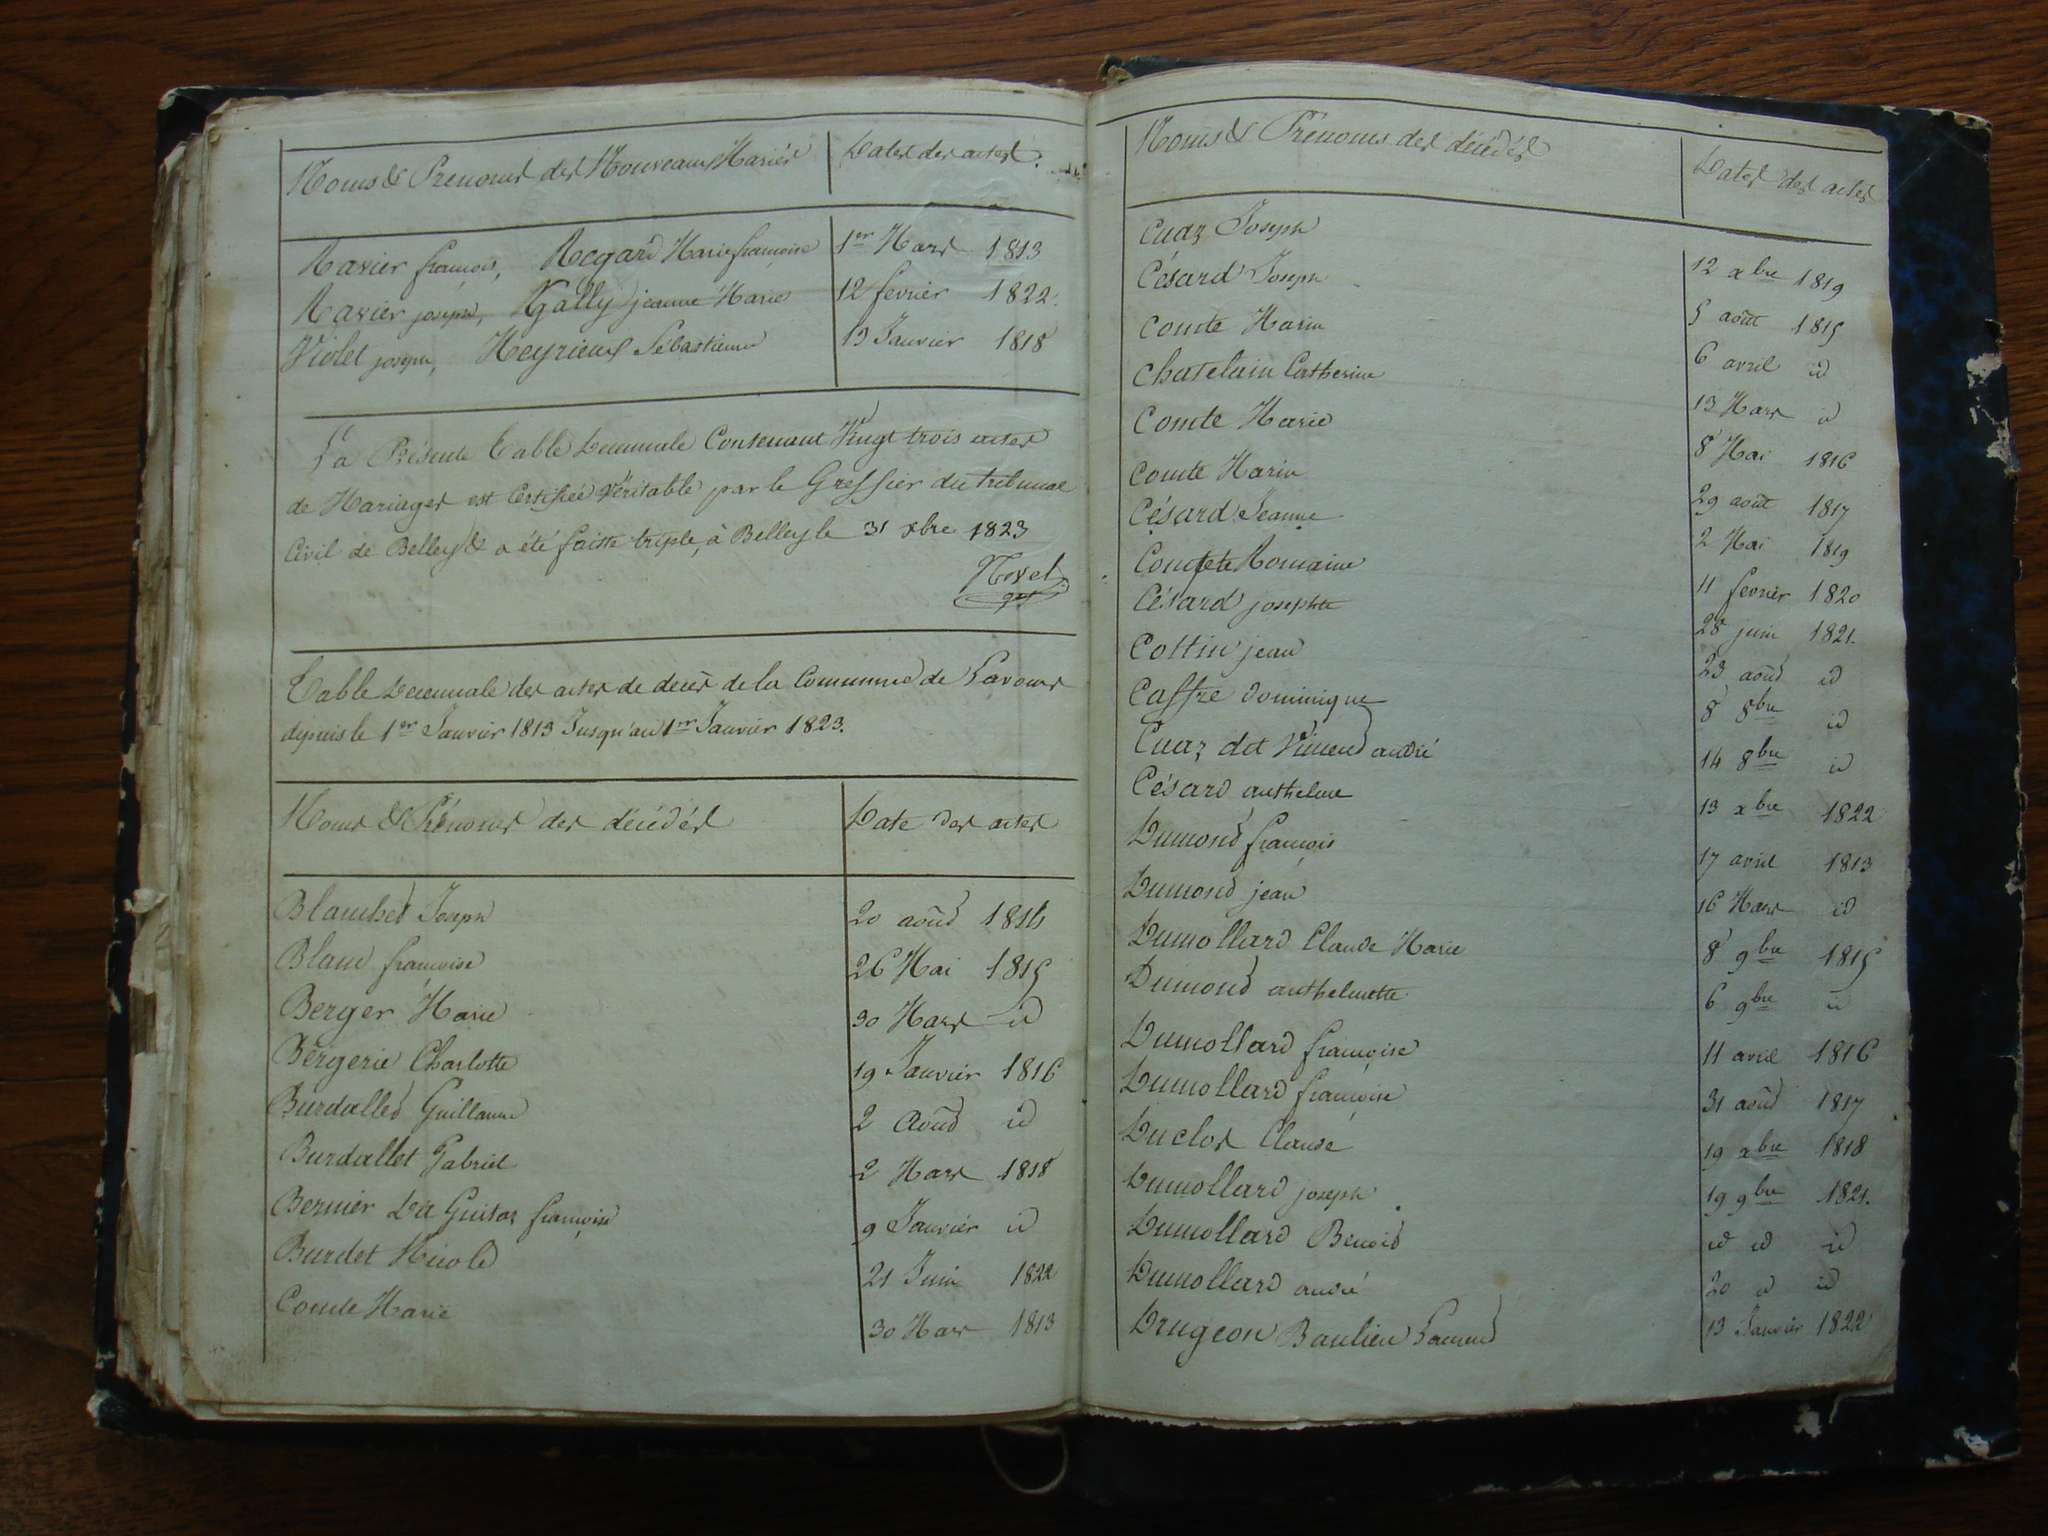 Noms & Prenoms des Nouveaux Mariés Dates des actes.
Ravier françois, Regard Marie françoise 1er Mars 1813
Ravier joseph, Gally jeanne Marie 12 fevrier 1822.
Violet joseph, Meyrieux Sébastienne 13 Janvier 1818
La Présente Table Decennale Contenant Vingt trois actes
de Mariages est Certifiée Véritable par le Greffier du tribunal
Civil de Belley & a été faitte triple, à Belley le 31 xbre 1823
Table Decennale des actes de decès de la Commune de Lavours
depuis le 1er Janvier 1813 Jusqu'au 1er Janvier 1823.
Noms & Prénoms des décédés Date des actes
Blanchet Joseph 20 août 1814
Blanc françoise 26 Mai 1815
Berger Marie 30 Mars id
Bergerie Charlotte 19 Janvier 1816
Burdallet Guillaume 2 Août id
Burdallet Gabriel 2 Mars 1818
Bernier Dit Guitaz françoise 9 Janvier id
Burdet Nicole 21 Juin 1822
Comte Marie 30 Mars 1813
Noms & Prénoms des décédés Dates des actes
Cuaz Joseph 12 xbre 1819
Césard Joseph 5 août 1815
Comte Marin 6 avril id
Chatelain Catherine 13 Mars id
Comte Marie 8 Mai 1816
Comte Marin 29 août 1817
Césard Jeanne 2 Mai 1819
Comte Romaine 11 fevrier 1820
Césard josephte 28 juin 1821.
Cottin jean 23 août id
Caffre Dominique 8 8bre id
Cuaz dit Vincend andré 14 8bre id
Césard anthelme 13 xbre 1822
Dumond françois 17 avril 1813
Dumond jean 16 Mars id
Dumollard Claude Marie 8 9bre 1815
Dumond anthelmette 6 9bre id
Dumollard françoise 11 avril 1816
Dumollard françoise 31 août 1817
Duclos Claude 19 xbre 1818
Dumollard joseph 19 9bre 1821.
Dumollard Benoid id id id
Dumollard andré 20 id id
Drugeon Baulieu 13 Janvier 1822